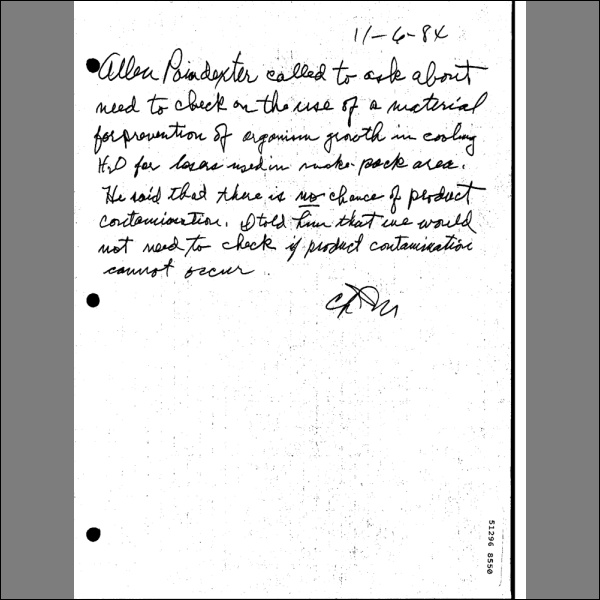 11-6-84
Allen Poindexter called to ask about
need to check on the use of a material
for prevention of organism growth in cooling
H2O for lasers used in make-pack area.
He said that there is no chance of product
contamination. I told him that we would
not need to check if product contamination
cannot occur.
51296 8550